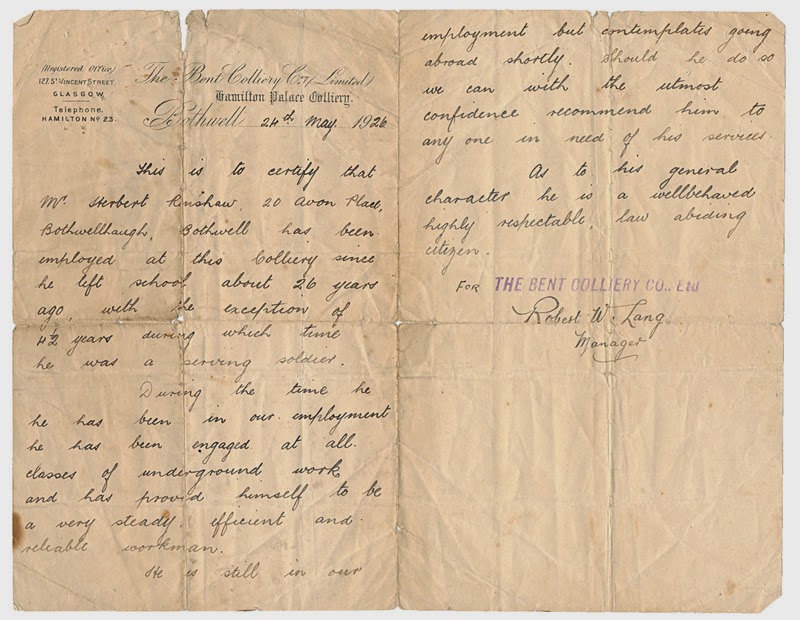 Registered Office
127, St VINCENT STREET.
GLASGOW.
Telephone.
HAMILTON No 23.
The Bent Colliery Coy Limited
Hamilton Palace Colliery.
Bothwell 24th May 1926
This is to certify that
Mr Herbert Kinshaw, 20 Avon Place,
Bothwellhaugh, Bothwell has been
employed at this Colliery since
he left school about 26 years
ago, with the exception of
4½ years during which time
he was a serving soldier.
During the time he
he has been in our employment
he has been engaged at all
classes of underground work
and has proved himself to be
a very steady, efficient and
reliable workman.
He is still in our
employment but contemplates going
abroad shortly. Should he do so
we can with the utmost
confidence recommend him to
any one in need of his services.
As to his general
character he is a wellbehaved
highly respectable, law abiding
citizen.
FOR THE BENT COLLIERY CO., Ltd
Robert W. Lang
Manager